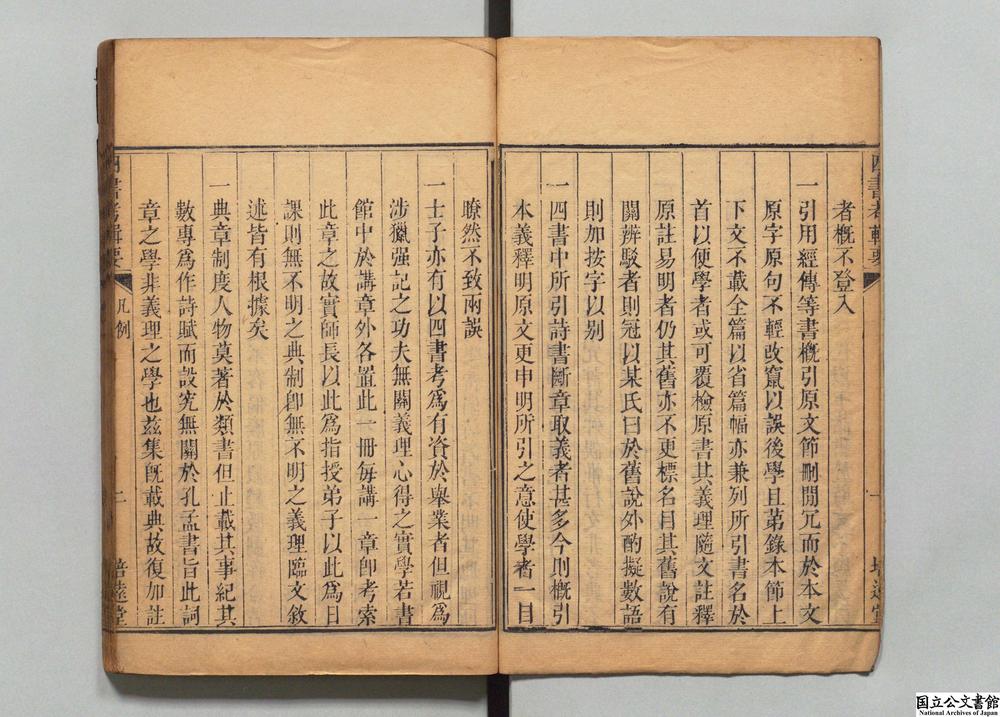 者概不登入
一引用經傳等書概引原文節刪閒冗而於本文
原字原句不輕改竄以誤後學且苐錄本節上
下文不載全篇以省篇幅亦兼列所引書名於
首以便學者或可覆檢原書其義理隨文註釋
原註易明者仍其舊亦不更標名目其舊說有
關辨駁者則冠以某氏曰於舊說外酌擬數語
則加按字以别
一四書中所引詩書斷章取義者甚多今則概引
本義釋明原文更申明所引之意使學者一目
瞭然不致兩誤
一士子亦有以四書考爲有資於舉業者但視爲
涉獵强記之功夫無關義理心得之實學若書
館中於講章外各置此一冊每講一章卽考索
此章之故實師長以此爲指授弟子以此爲日
課則無不明之典制卽無不明之義理臨文敘
述皆有根據矣
一典章制度人物莫著於類書但止載其事紀其
數專爲作詩賦而設究無關於孔孟書旨此詞
章之學非義理之學也兹集旣載典故復加註
四書考輯要
凡例
二
培遠堂
国立公文書館
National Archives of Japan